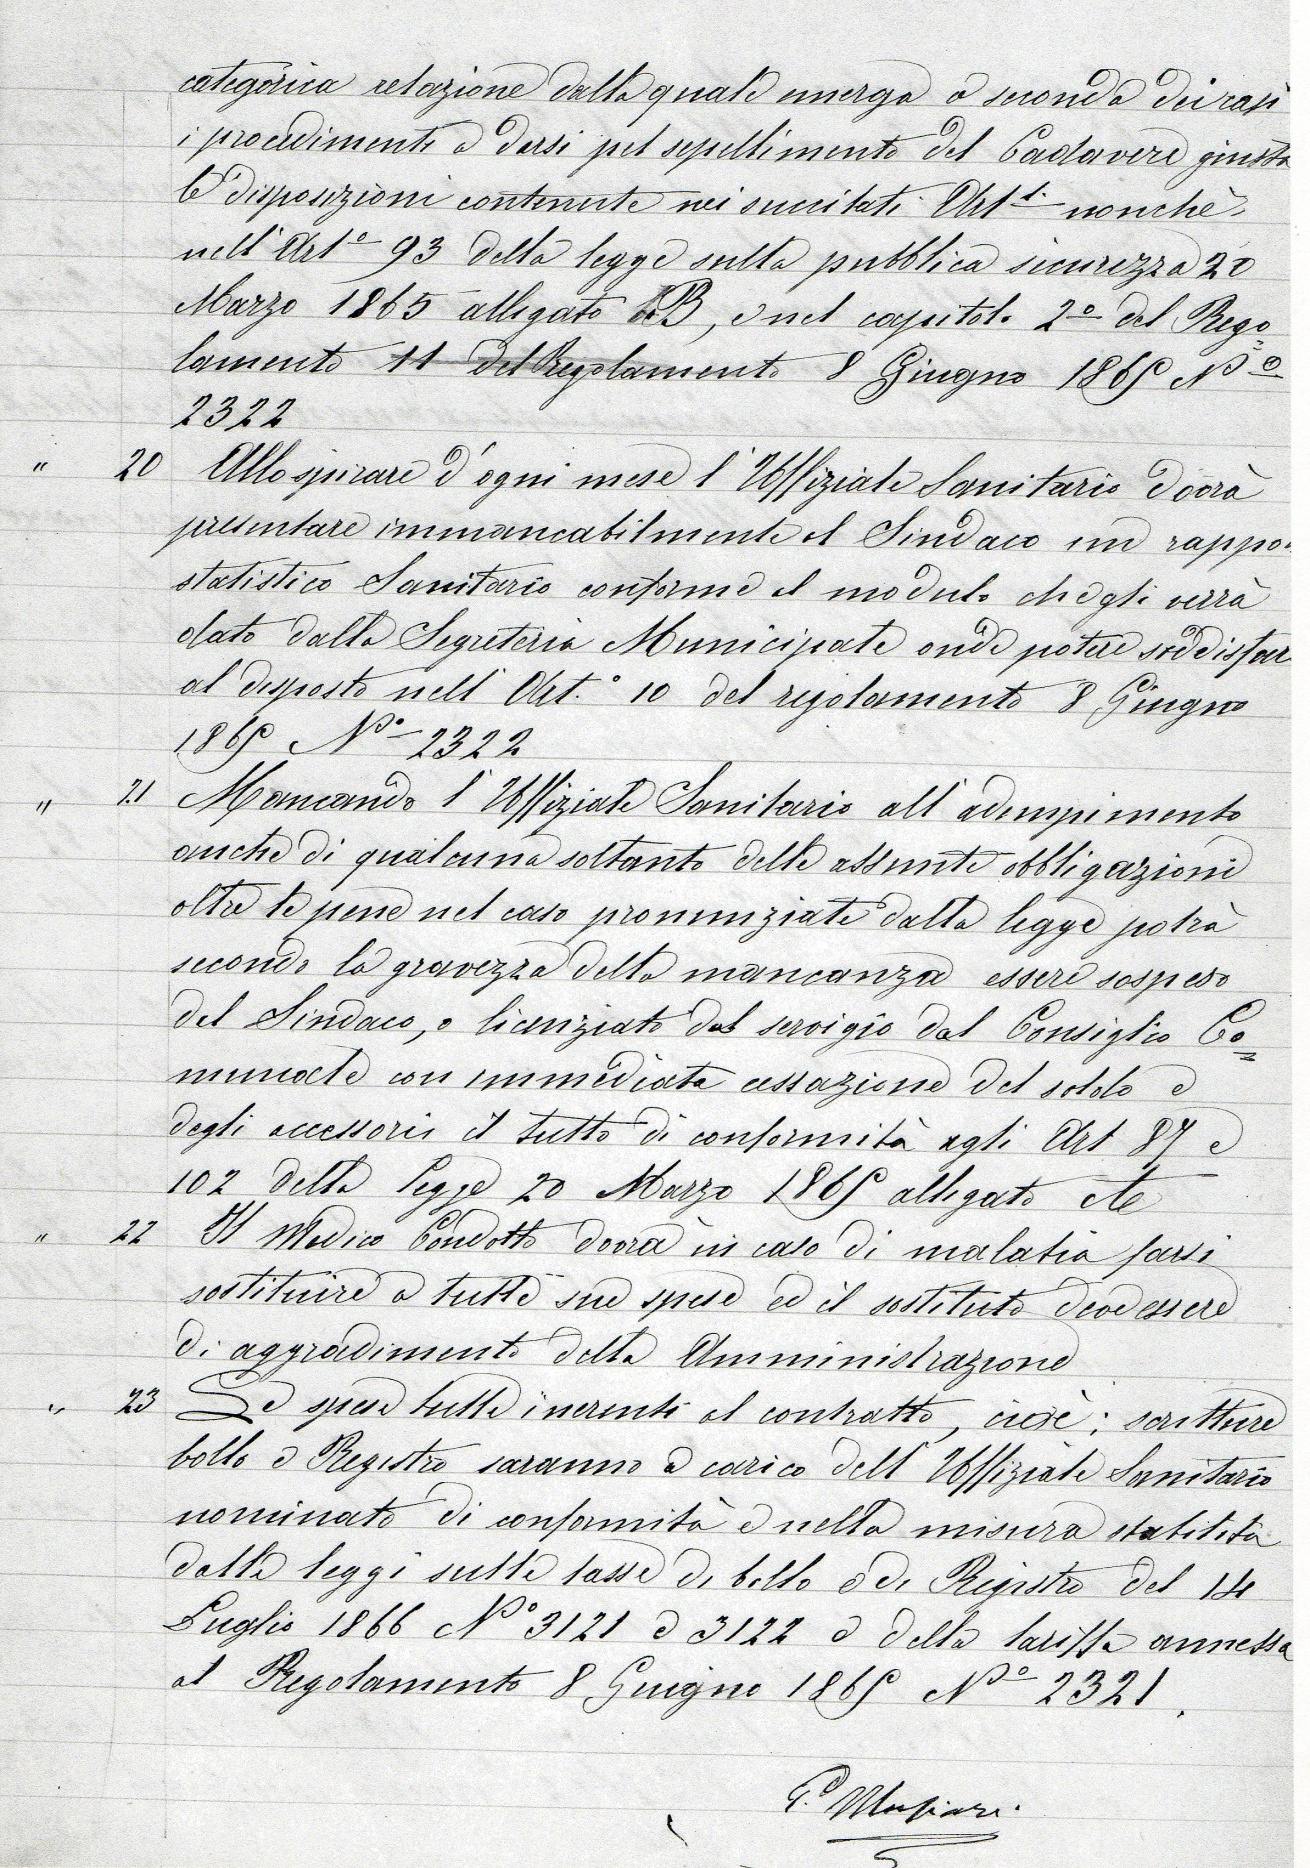 categorica relazione dalla quale emerga a seconda dei casi
i procedimenti a darsi pel sepellimento del Cadavere giusta
le disposizioni contenute nei succitati Art.i nonchè
nell'Art.o 93 della legge sulla pubblica sicurezza 20
Marzo 1865 allegato B, e nel capitolo 2o del Rego
lamento 11 del Regolamento 8 Giugno 1865 No
2322
" 20 Allo spirare d'ogni mese l'Uffiziale Sanitario dovrà
presentare immancabilmente al Sindaco un rappo
statistico Sanitario conforme al modulo che gli verrà
dato dalla Segreteria Municipale onde potere soddisfar
al disposto nell'Art.o 10 del regolamento 8 Giugno
1865 No 2322
" 21 Mancando l'Uffiziale Sanitario all'adempimento
anche di qualcuna soltanto delle assunte obbligazioni
oltre le pene nel caso pronunziate dalla legge potrà
secondo la gravezza della mancanza essere sospeso
dal Sindaco, o licenziato dal servigio dal Consiglio Co=
munale con immediata cessazione del soldo e
degli accessorii il tutto di conformità agli Art 87 e
102 della legge 20 Marzo 1865 allegato A
" 22 Il Medico Condotto dovrà in caso di malatia farsi
sostituire a tutte sue spese ed il sostituto deve essere
di aggradimento della Amministrazione
" 23 Le spese tutte inerenti al contratto, cioè: scritture
bollo e Registro saranno a carico dell'Uffiziale Sanitario
nominato di conformità e nella misura stabilita
dalle leggi sulle tasse di bollo e di Registro del 14
Luglio 1866 No 3121 e 3122 e della tariffa annessa
al Regolamento 8 Giugno 1865 No 2321.